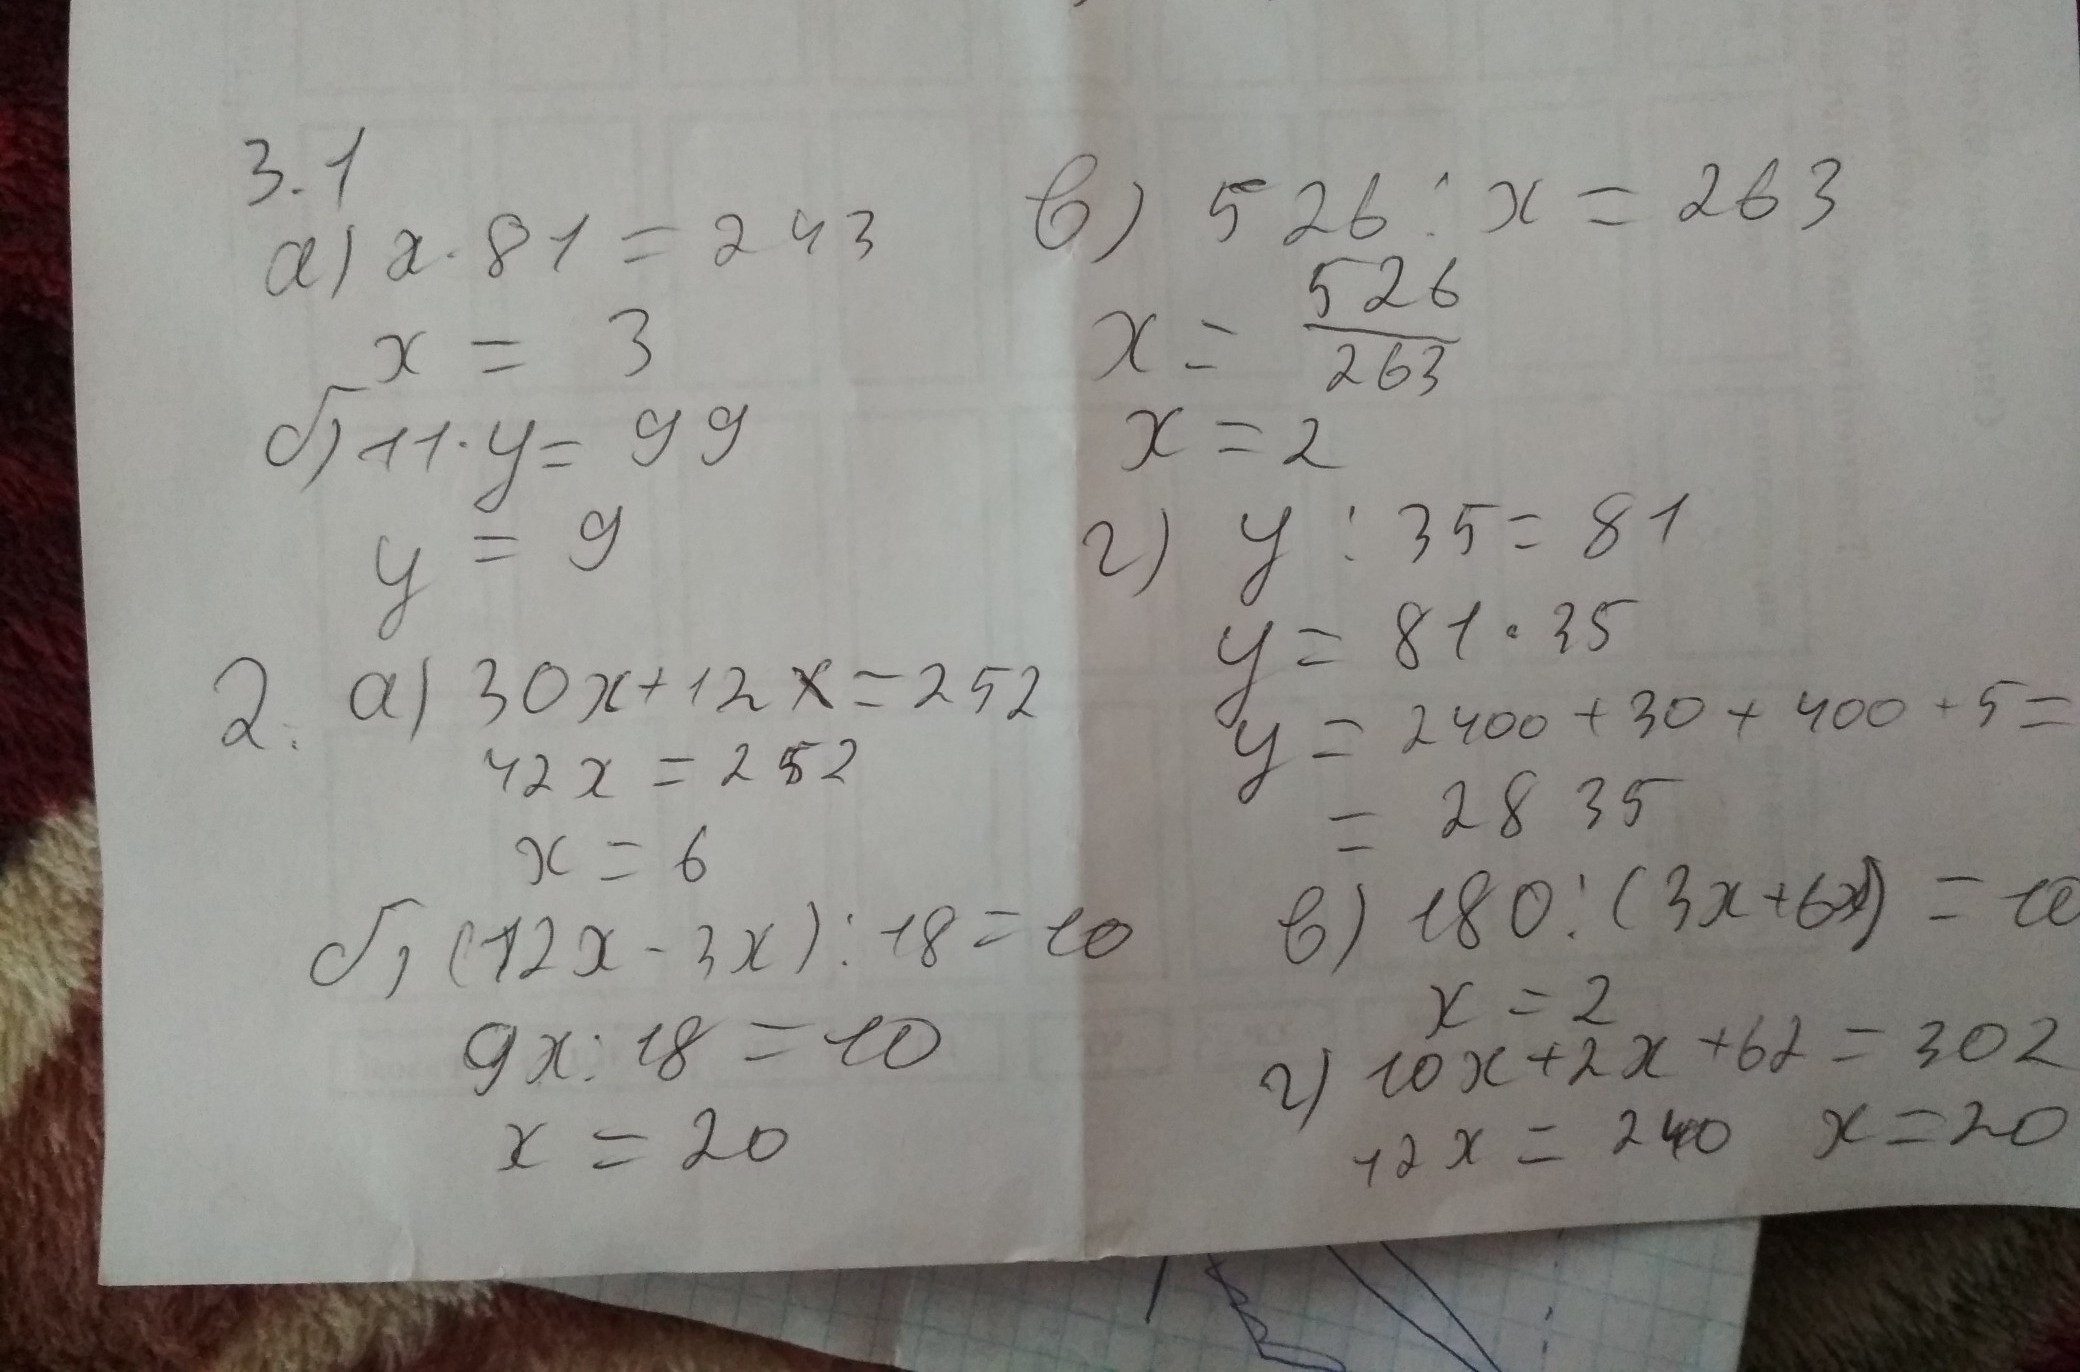 3.1
а) x · 81 = 243
x = 3
б) 11 · y = 99
y = 9
2. а) 30x + 12x = 252
42x = 252
x = 6
б) (12x - 3x) : 18 = 10
9x : 18 = 10
x = 20
в) 526 : x = 263
x = 526/263
x = 2
г) y : 35 = 81
y = 81 · 35
y = 2400 + 30 + 400 + 5 =
= 2835
в) 180 : (3x + 6x) = 10
x = 2
г) 10x + 2x + 62 = 302
12x = 240 x = 20